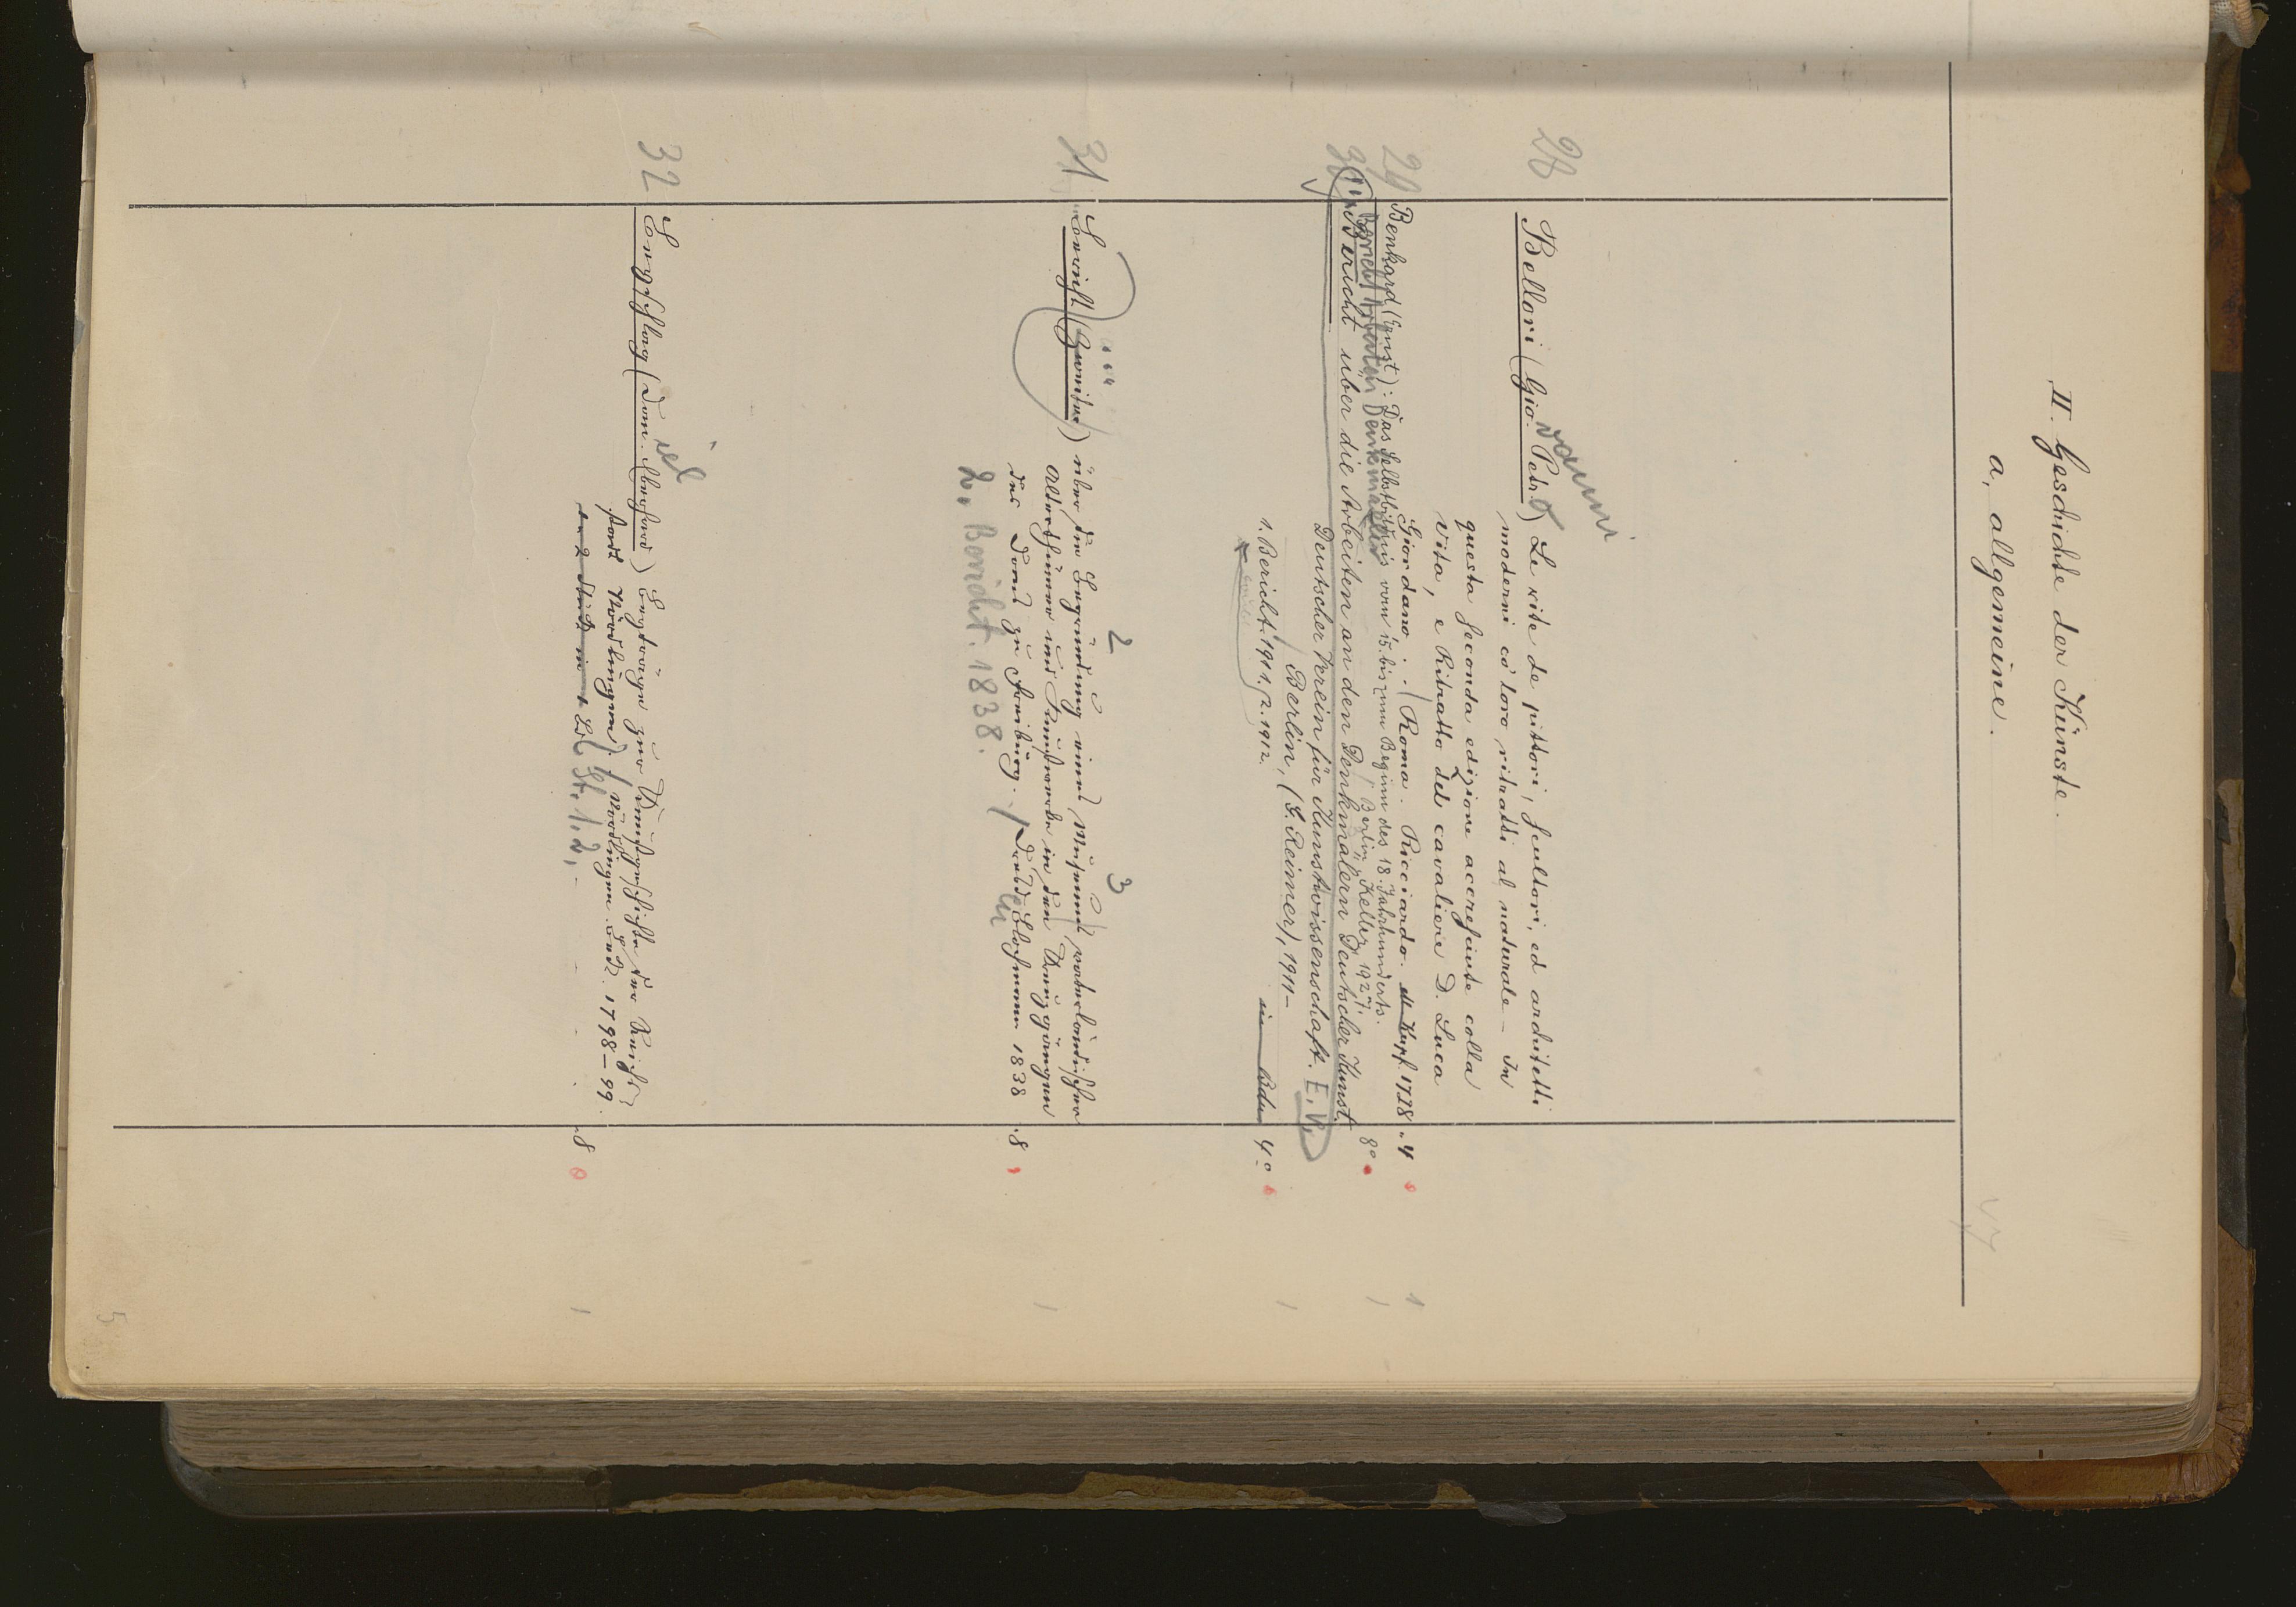 II. Geschichte der Künste.
a, allgemeine.
47
28
Bellori (Gio. Petro) Le vite de pittori, scultori, ed architetti
vanni
moderni co' loro ritratti al naturale - In
questa seconda edizione accresciute colla
Vita, e Ritratto del cavaliere D. Luca
Giordano. / Roma. Ricciardo. m. Kupf. 1728. 4
29 Benkard (Ernst): Das Selbstbildnis vom 15. bis zum Beginn des 18. Jahrhunderts.
/ Berlin, Keller, 1927. 8°
30 Bericht über die Arbeiten an den Denkmälern Deutscher Kunst.
Deutscher Verein für Kunstwissenschaft. E. V.
Berlin, (G. Reimer), 1911-
1. Bericht. 1911. / 2. 1912. 4°
31 Bericht (Zweiter) über die Begründung eines Museums vaterländischer
2 3
Alterthümer und Kunstwerke in den Kreuzgängen
des Doms zu Freiberg. / Dresden Blochmann 1838 8
2. Bericht. 1838.
32 Beyschlag (Dan. Eberhard) Beyträge zur Kunstgeschichte der Reichs-
iel
stadt Nördlingen. / Nördlingen. Beck. 1798-99. 8
St. 1. 2,
5